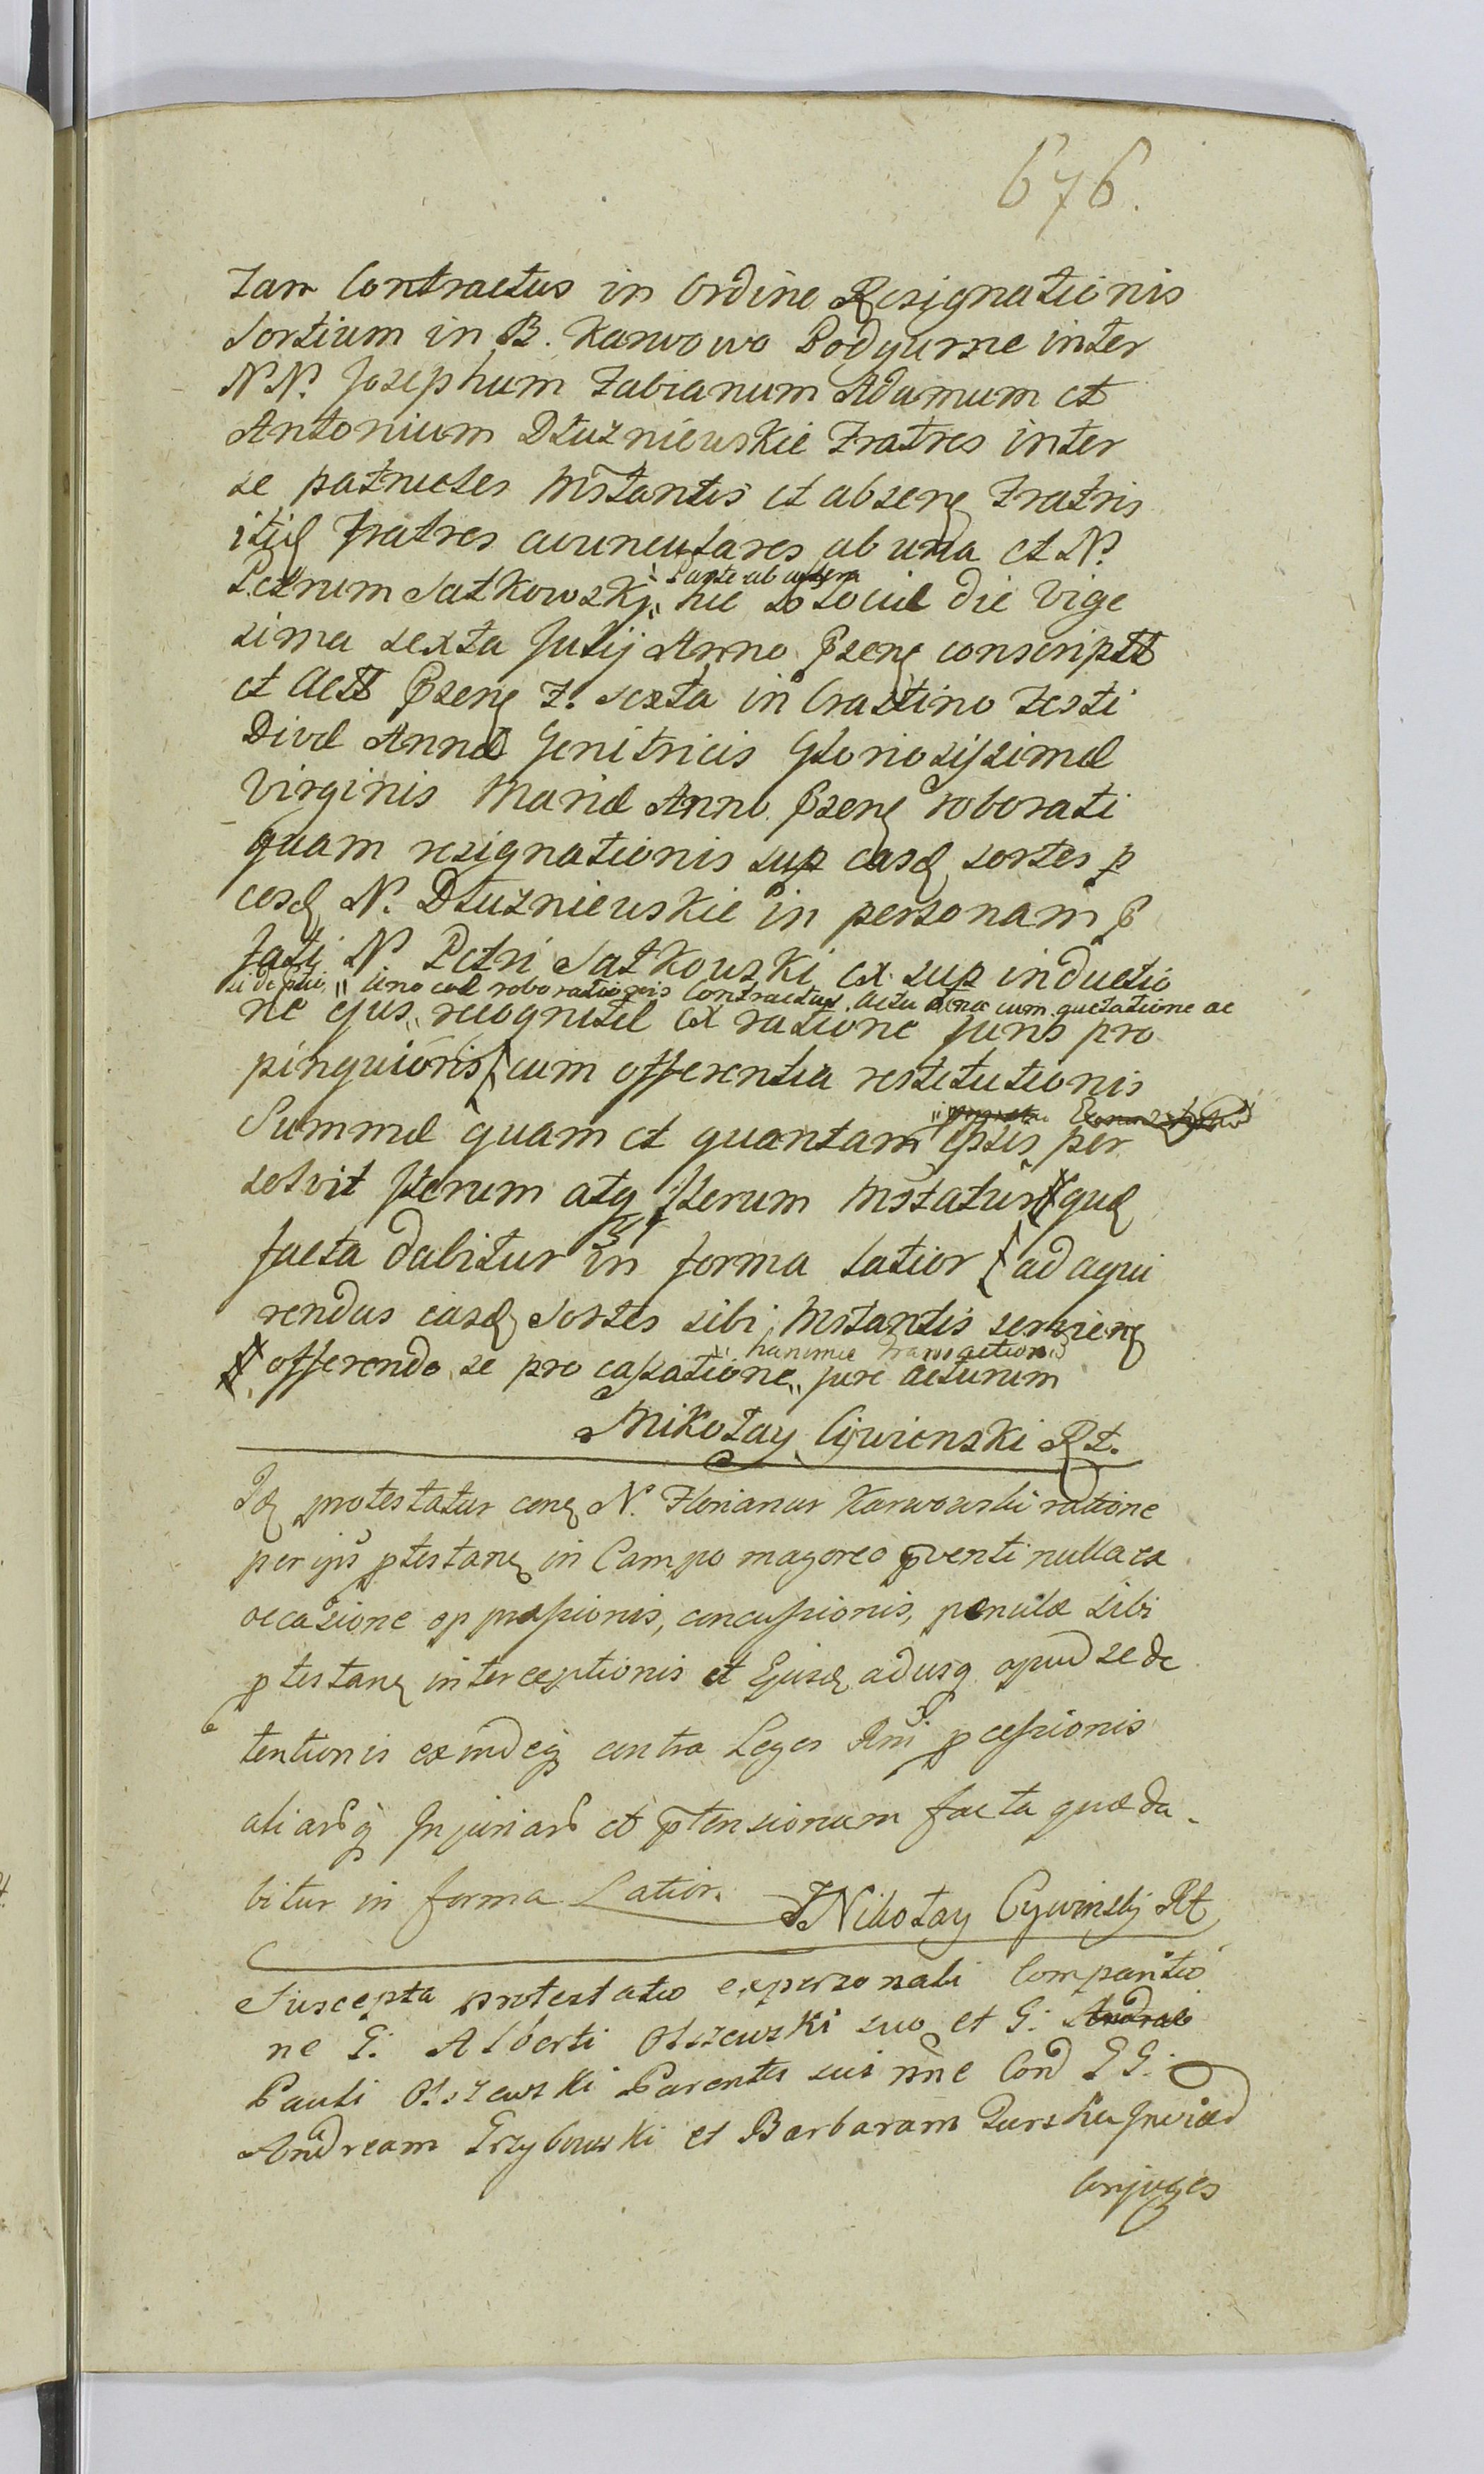 676.
Tam Contractus in Ordine Resignationis
Sortium in B. Karwowo Podgurne inter
N.N. Josephum Fabianum Adamum et
Antonium Dłuzniewskie Fratres inter
se patrueles Instantis et absen Fratris
Fratres avunculares ab una et N.
Petrum Satkowski „ Parte ab altera hic Loci die Vige
sima sexta Julij Anno Psen conscript
et Actt Psen F. Sexta in Crastino Festi
Divæ Annæ Genitricis Gloriosissimæ
Virginis Mariæ Anno Psen roborati
quam resignationis sup easd sortes p
eosd N. Dłuzniewskie in personam P
fati N. Petri Satkowski ex sup inductio
„ Uno eod roborationis Contractus Actu cum quetatione ac
ne ejus „ recognitæ ex ratione Juris pro
pinquioris cum offerentia restitutionis
Summæ quam et quantam ipsis per
solvit Iterum atq Iterum Instatur quæ
facta dabitur in forma latior ad aqui
rendas easd Sortes sibi Instantis servien
offerendo se pro cassatione „ hanimce transactionis jure acturum
Mikołay Cywienski Rt.
Id protestatur con N. Florianus Karwowski ratione
per ejus ptestan in Campo magoreo pventi nulla ex
occasione oppressionis, concussionis, peculæ sibi
ptestan interceptionis et Ejusd adusq apud se de
tentionis exindeq contra Leges Rni pcessionis
aliarq Injuriar et ptensionum facta quæ da-
bitur in forma Latior. Nikołay Cywinski Rt
Suscepta protestatio expersonali Comparitio
ne G. Alberti Olszewski suo et G. Andreæ
Pauli Olszewski Parentis sui nne Con GG.
Andream Grzybowski et Barbaram
Conjuges